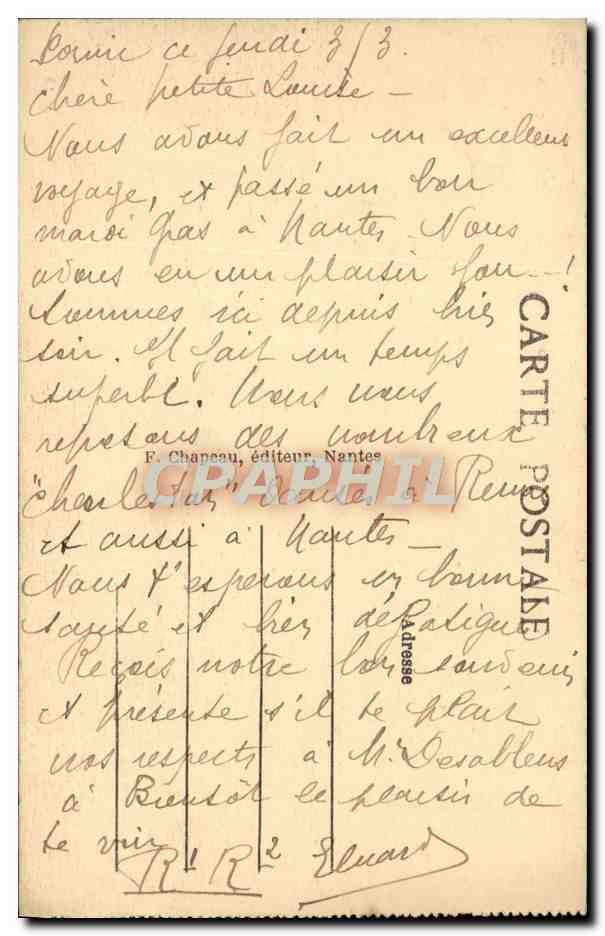 Pornic ce jeudi 3/3.
Chère petite Louise —
Nous avons fait un excellent
voyage, et passé un bon
mardi gras à Nantes. Nous
avons eu un plaisir fou --- !
sommes ici depuis hier
soir. Il fait un temps
superbe. Nous nous
reposons des nombreux
F. Chapeau, éditeur, Nantes
CARTE POSTALE
CARTOPHIL
"Charleston" dansés à
et aussi à Nantes —
Nous t'espérons en bonne
santé et bien défatiguée
Adresse
Reçois notre bon souvenir
et présente s'il te plait
nos respects à Mr
à Bientôt le plaisir de
te voir
R1 R2